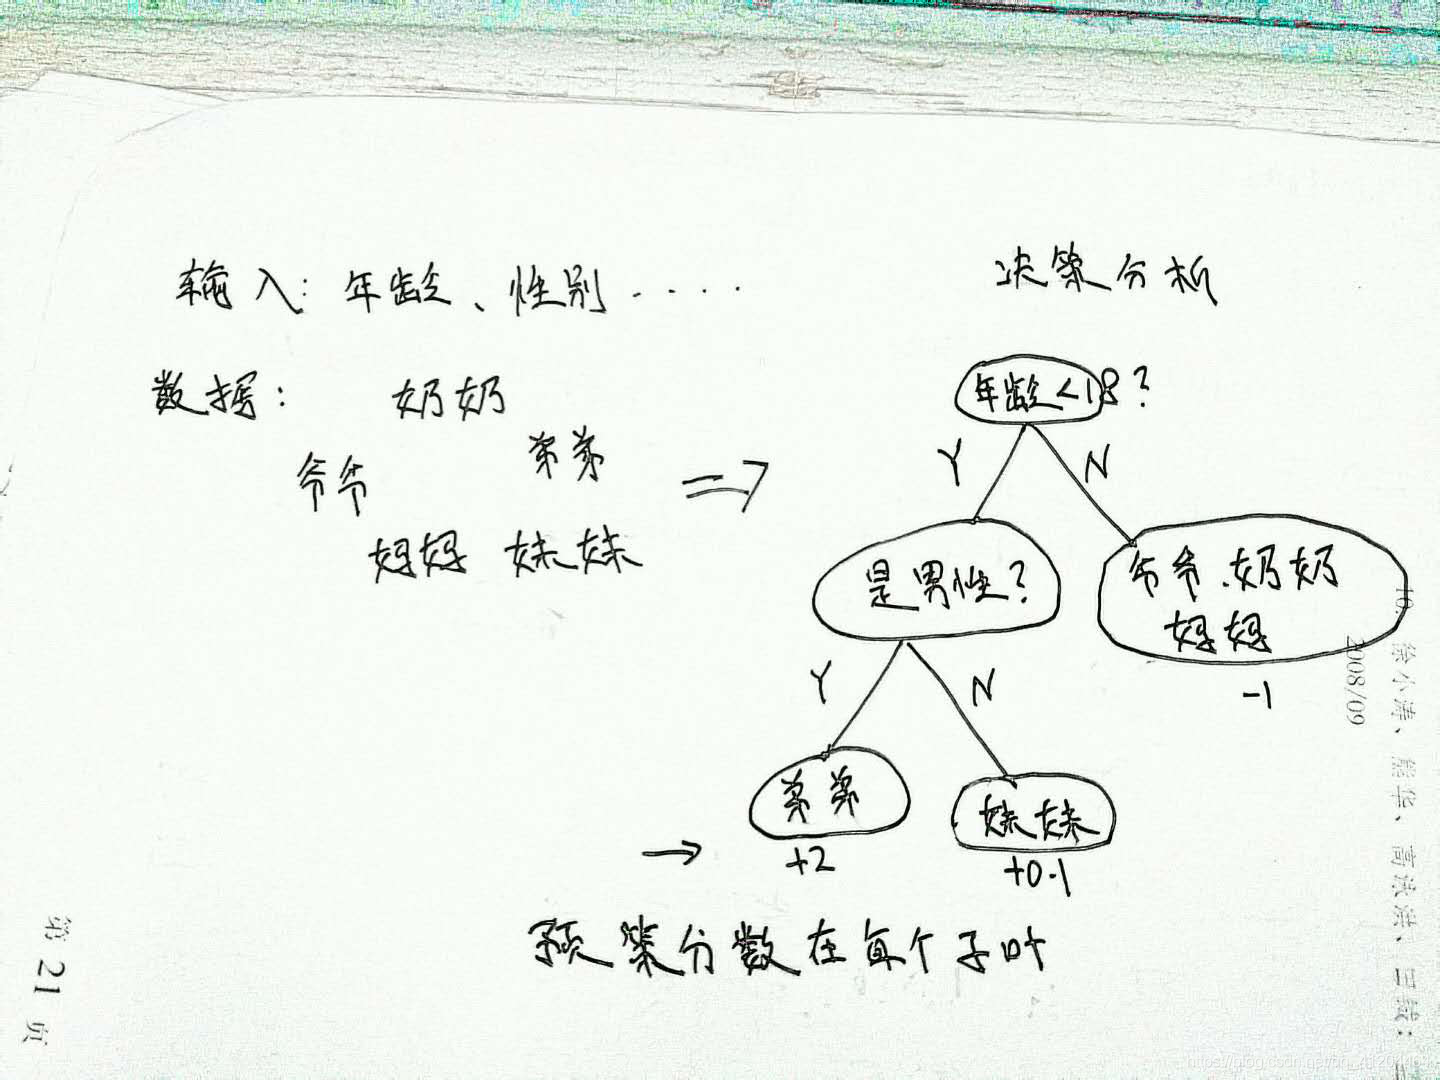 输入：年龄、性别.....
决策分析
数据：
奶奶
爷爷
弟弟
妈妈 妹妹
年龄<18?
Y
N
是男性？
爷爷.奶奶
妈妈
-1
Y
N
弟弟
+2
妹妹
+0.1
预策分数在每个子叶
第 21 页
10.
2008/09
徐小涛、熊华、高泳洪、